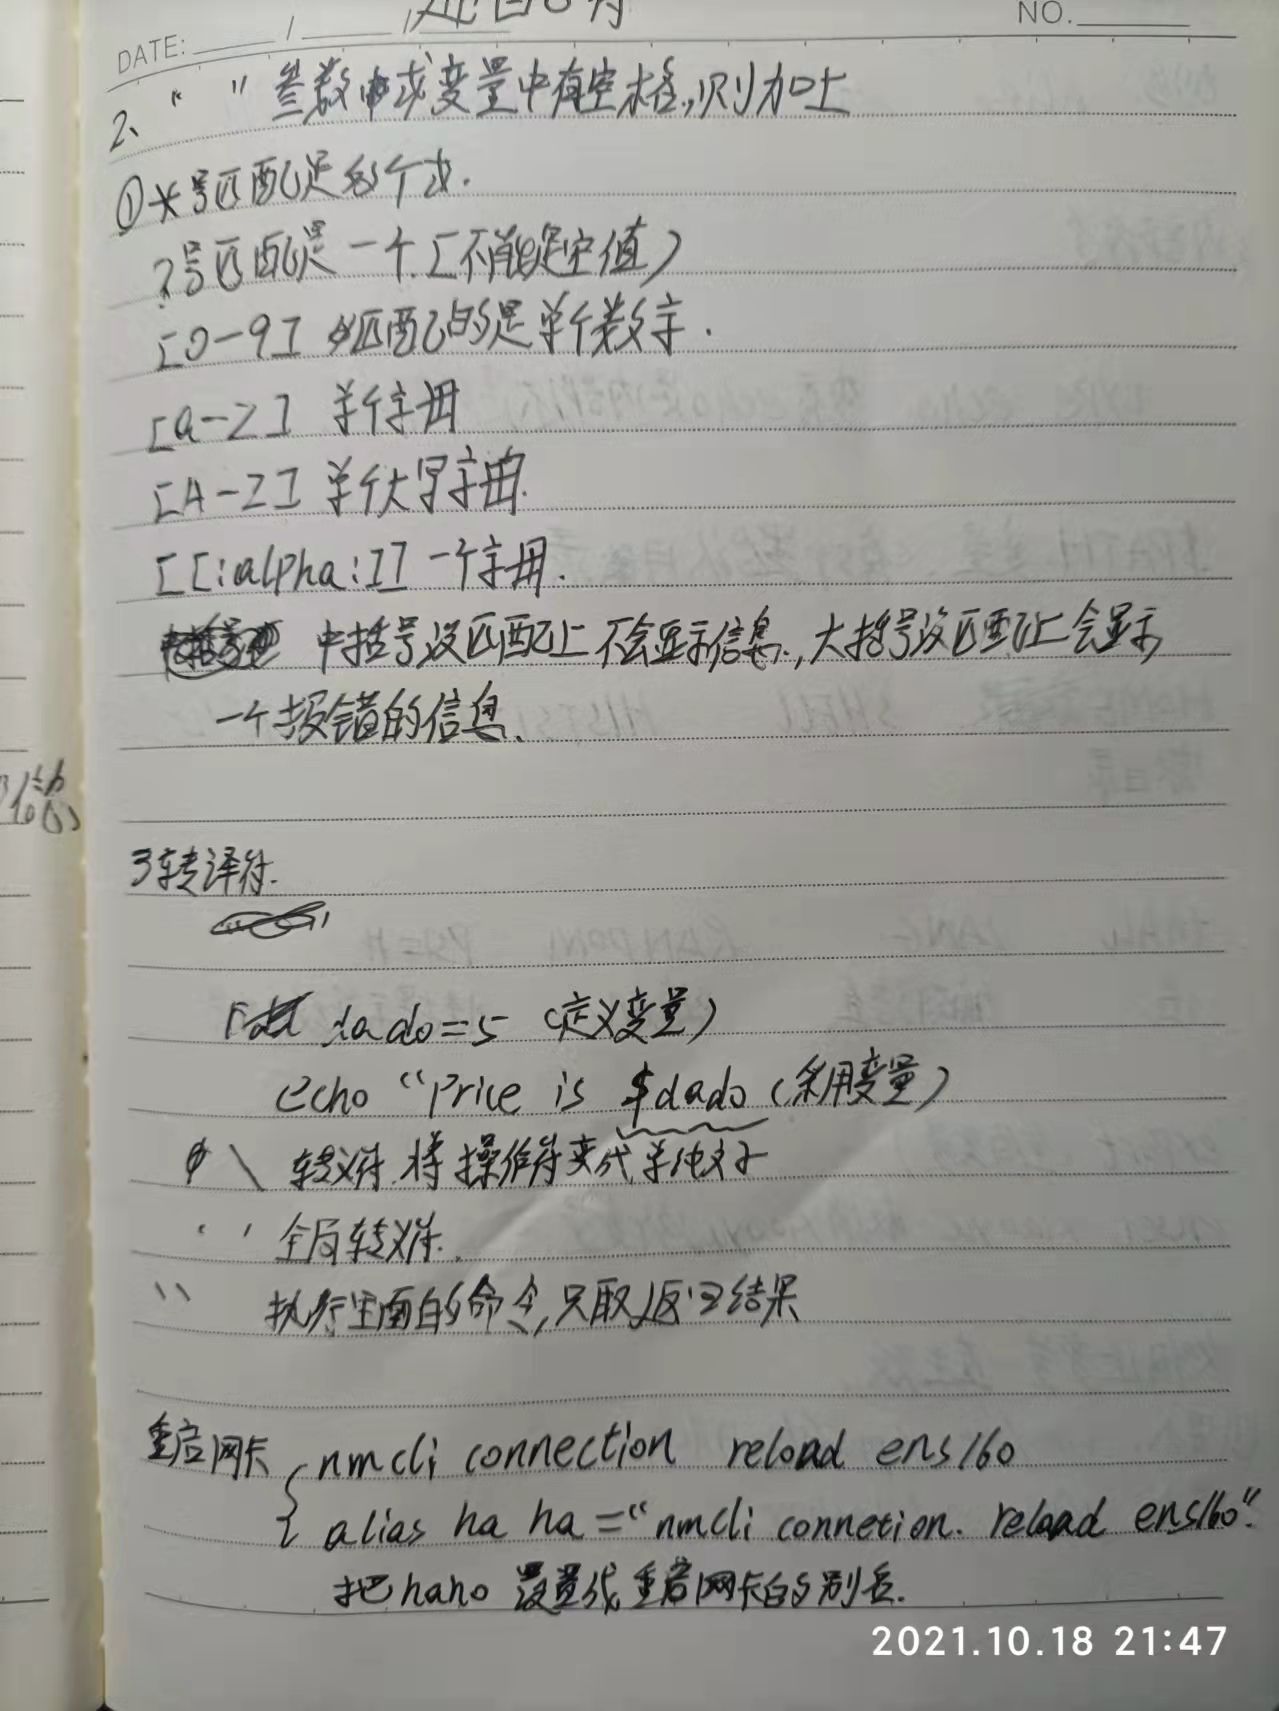 DATE: / /
NO.
2、" " 参数中或变量中有空格,则加上
①*号匹配是多个或.
?号匹配是一个.[不能是空值)
[0-9] 匹配的是单个数字.
[a-z] 单个字母
[A-Z] 单个大写字母.
[[:alpha:]] 一个字母.
中括号没匹配上不会显示信息,大括号没匹配上会显示
一个报错的信息.
3转译符.
dado=5 (定义变量)
echo "Price is $dado (采用变量)
\ 转义符.将操作符变成单纯文字
' ' 全局转义符.
`` 执行里面的命令,只取返回结果
重启网卡 { nmcli connection reload ens160
alias ha ha="nmcli connetion. reload ens160".
把haho 设置成重启网卡的别名.
2021.10.18 21:47